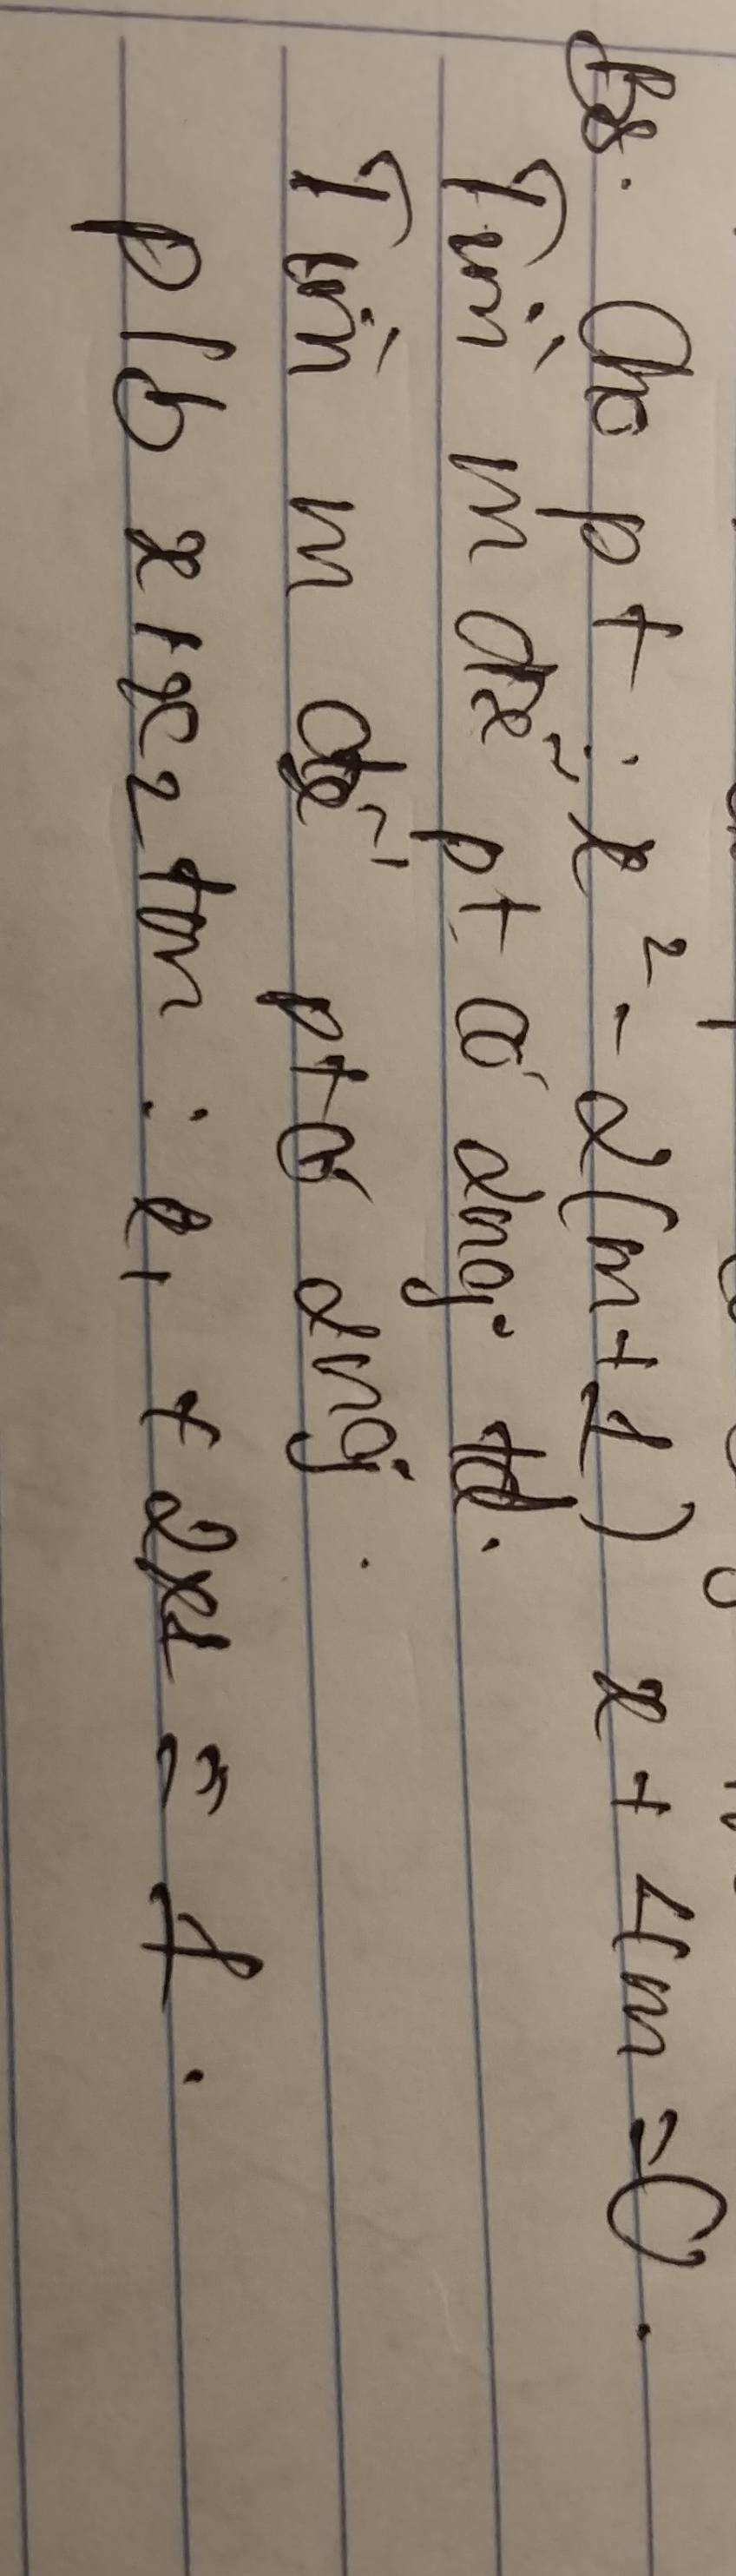 B8. Cho pt : x² - 2(m+1) x + 4m = 0.
Tìm m để pt có 2 ng° td.
Tìm m để pt có 2 ng°.
p/b x1 x2 tm : x1 + 2x2 = 7.